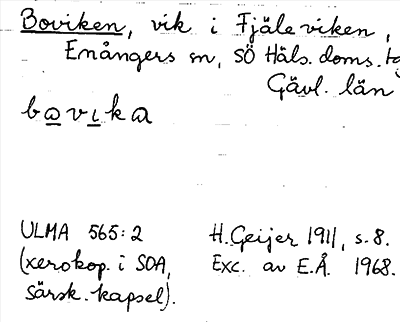 Boviken, vik i Fjäleviken,
Enångers sn, SÖ Häls. doms.
Gävl. län
bovika
ULMA 565:2 H. Geijer 1911, s. 8.
(xerokop. i SOA, Exc. av E.Å. 1968.
särsk. kapsel).